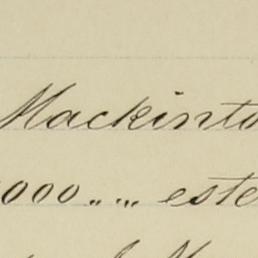 Mackinto
000 „ „ este